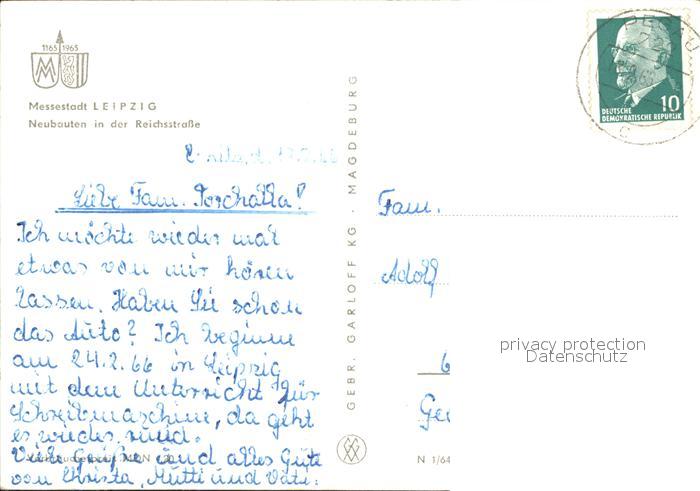 1165 1965
Messestadt LEIPZIG
Neubauten in der Reichsstraße
Liebe Fam.
Ich möchte wieder mal
etwas von mir hören
lassen. Haben Sie schon
das Auto? Ich beginne
am 24.2.66 in Leipzig
mit dem Unterricht für
Schreibmaschine, da geht
es wieder rund.
Viele Grüße und alles Gute
von Christa, Mutti und Vati.
GEBR. GARLOFF KG · MAGDEBURG
10
DEUTSCHE
DEMOKRATISCHE REPUBLIK
Fam.
Adolf
privacy protection
Datenschutz
6
Ge
N 1/64